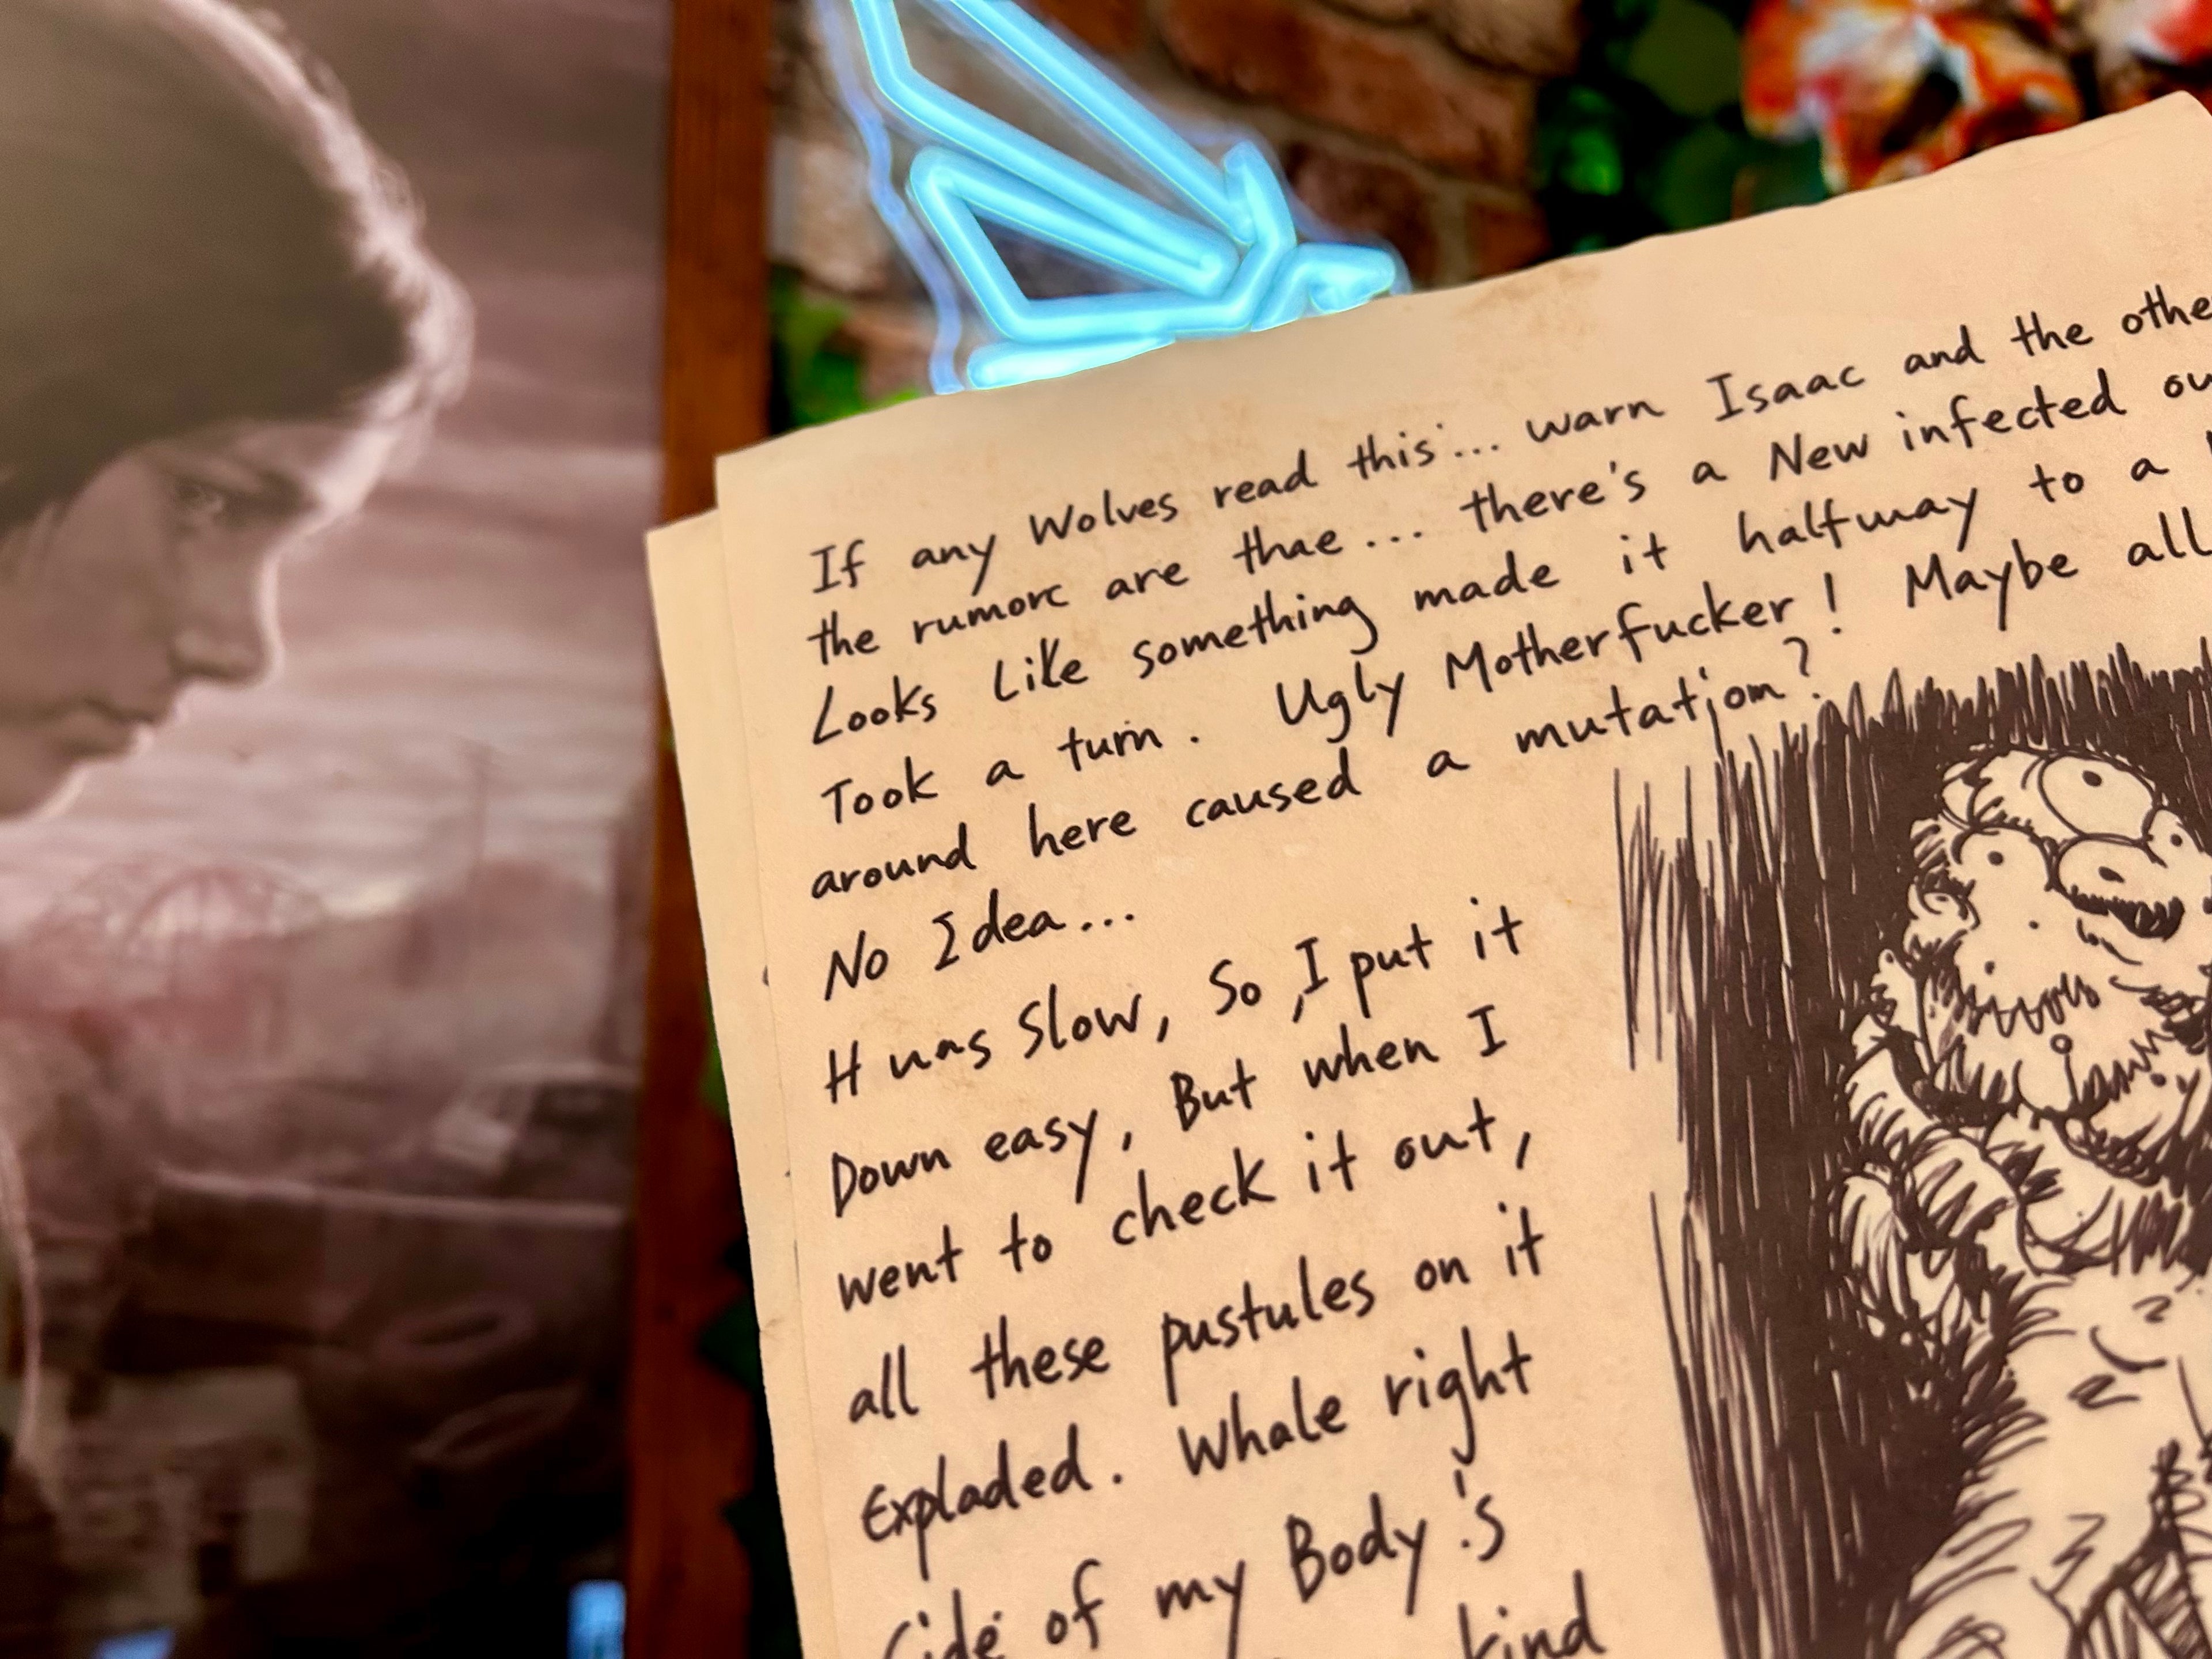 If any Wolves read this... warn Isaac and the othe
the rumorc are thae... there's a New infected ou
Looks Like something made it halfway to a
Took a turn. Ugly Motherfucker! Maybe all
around here caused a mutation?
No Idea...
It was Slow, So, I put it
Down easy, But when I
went to check it out,
all these pustules on it
Exploded. Whale right
Side of my Body's
kind